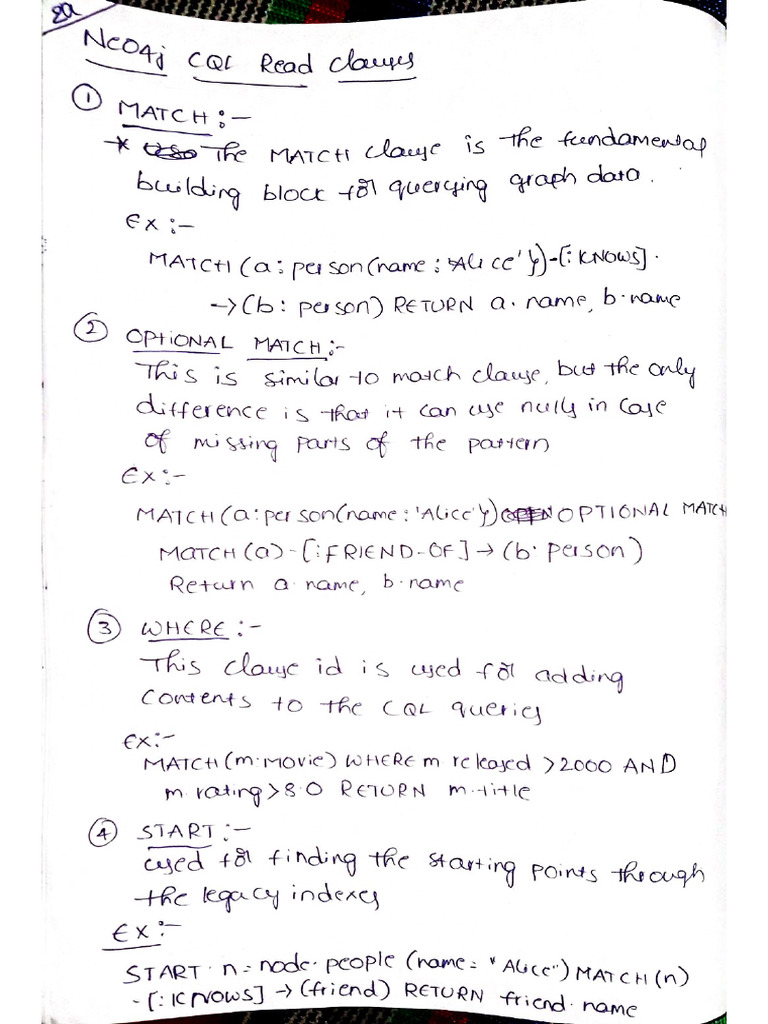 8a
Neo4j CQL Read Clauses
① MATCH :-
* The MATCH clause is the fundamental
building block for querying graph data.
Ex :-
MATCH (a: person(name : 'Alice'}) -[:KNOWS].
-> (b: person) RETURN a.name, b.name
② OPTIONAL MATCH :-
This is similar to match clause, but the only
difference is that it can use nulls in case
of missing parts of the pattern
Ex :-
MATCH (a: person(name: 'Alice'}) OPTIONAL MATCH
MATCH (a) - [: FRIEND-OF] → (b. person)
Return a.name, b.name
③ WHERE :-
This clause id is used for adding
contents to the CQL queries
Ex:-
MATCH (m.Movie) WHERE m.released > 2000 AND
m.rating > 8.0 RETURN m.title
④ START :-
used for finding the starting points through
the legacy indexes
Ex :-
START n = node.people (name = "Alice") MATCH (n)
- [: KNOWS] → (friend) RETURN friend.name